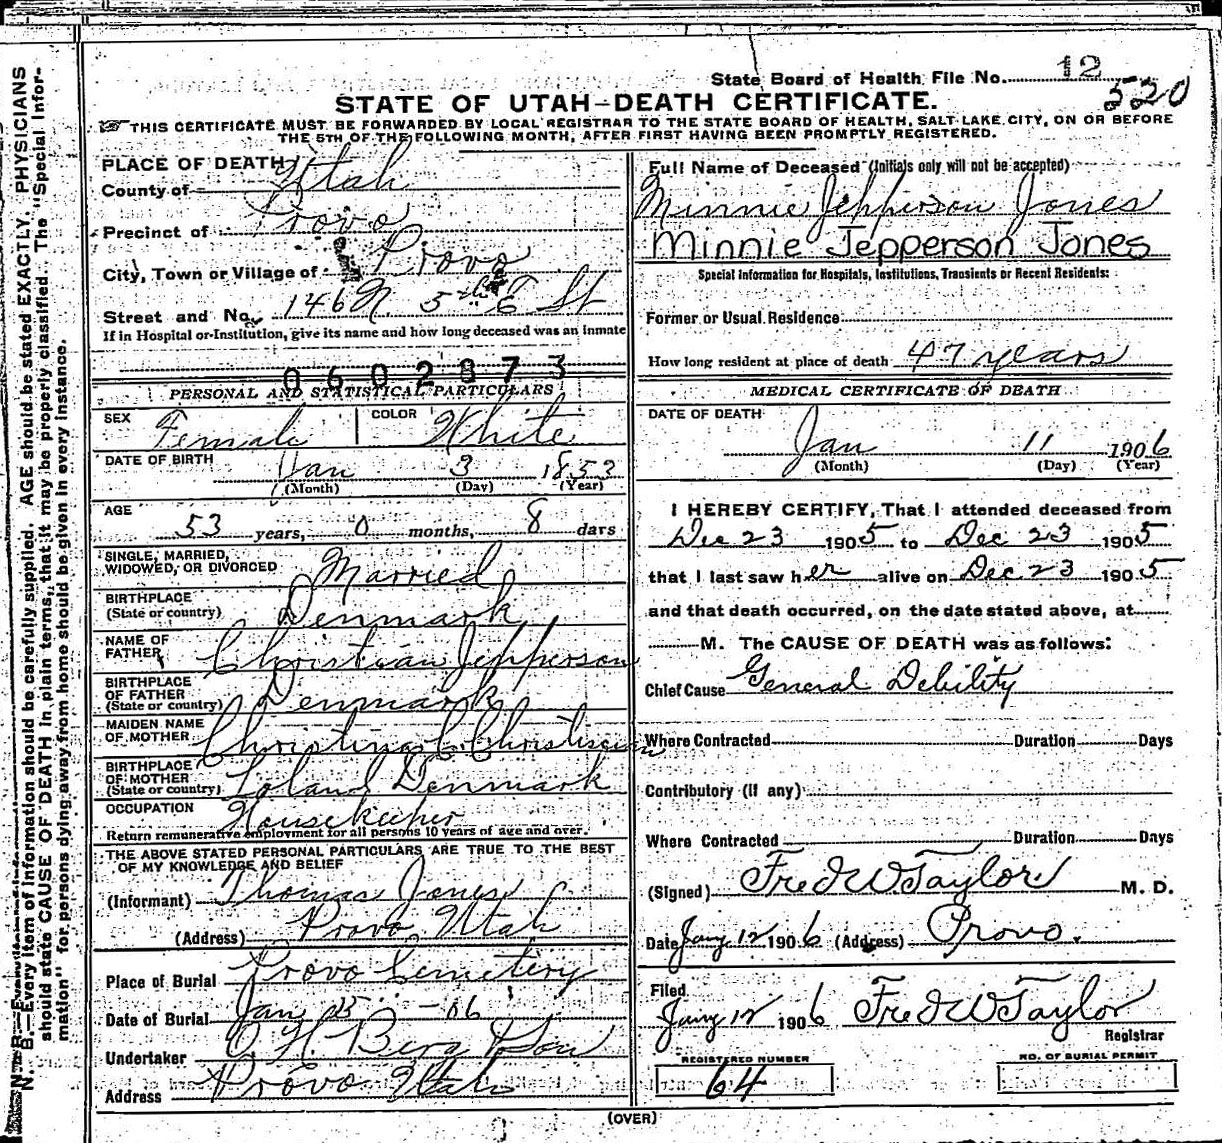 State Board of Health File No. 12
520
STATE OF UTAH—DEATH CERTIFICATE.
THIS CERTIFICATE MUST BE FORWARDED BY LOCAL REGISTRAR TO THE STATE BOARD OF HEALTH, SALT LAKE CITY, ON OR BEFORE
THE 5TH OF THE FOLLOWING MONTH, AFTER FIRST HAVING BEEN PROMPTLY REGISTERED.
PLACE OF DEATH
County of Utah
Precinct of Provo
City, Town or Village of Provo
Street and No. 146 N. 5th E St
If in Hospital or Institution, give its name and how long deceased was an inmate
0602873
PERSONAL AND STATISTICAL PARTICULARS
SEX Female COLOR White
DATE OF BIRTH Jan 3 1853
(Month) (Day) (Year)
AGE
53 years, 0 months, 8 days
SINGLE, MARRIED,
WIDOWED, OR DIVORCED Married
BIRTHPLACE
(State or country) Denmark
NAME OF
FATHER Christian Jepperson
BIRTHPLACE
OF FATHER
(State or country) Denmark
MAIDEN NAME
OF MOTHER Christina C Christiscum
BIRTHPLACE
OF MOTHER
(State or country) Loland Denmark
OCCUPATION Housekeeper
Return remunerative employment for all persons 10 years of age and over.
THE ABOVE STATED PERSONAL PARTICULARS ARE TRUE TO THE BEST
OF MY KNOWLEDGE AND BELIEF
(Informant) Thomas Jones
(Address) Provo Utah
Place of Burial Provo Cemetery
Date of Burial Jan 15 -06
Undertaker O H. Berg & Son
Address Provo Utah
Full Name of Deceased (Initials only will not be accepted)
Minnie Jepperson Jones
Minnie Jepperson Jones
Special Information for Hospitals, Institutions, Transients or Recent Residents:
Former or Usual Residence
How long resident at place of death 47 years
MEDICAL CERTIFICATE OF DEATH
DATE OF DEATH
Jan 11 1906
(Month) (Day) (Year)
I HEREBY CERTIFY, That I attended deceased from
Dec 23 1905 to Dec 23 1905
that I last saw her alive on Dec 23 1905
and that death occurred, on the date stated above, at
M. The CAUSE OF DEATH was as follows:
Chief Cause General Debility
Where Contracted Duration Days
Contributory (if any)
Where Contracted Duration Days
(Signed) Fred W Taylor M. D.
Date Jany 12 1906 (Address) Provo.
Filed
Jany 12 1906 Fred W Taylor
Registrar
REGISTERED NUMBER
64
NO. OF BURIAL PERMIT
(OVER)
N. B.—Every item of information should be carefully supplied. AGE should be stated EXACTLY. PHYSICIANS
should state CAUSE OF DEATH in plain terms, that it may be properly classified. The "Special Infor-
mation" for persons dying away from home should be given in every instance.